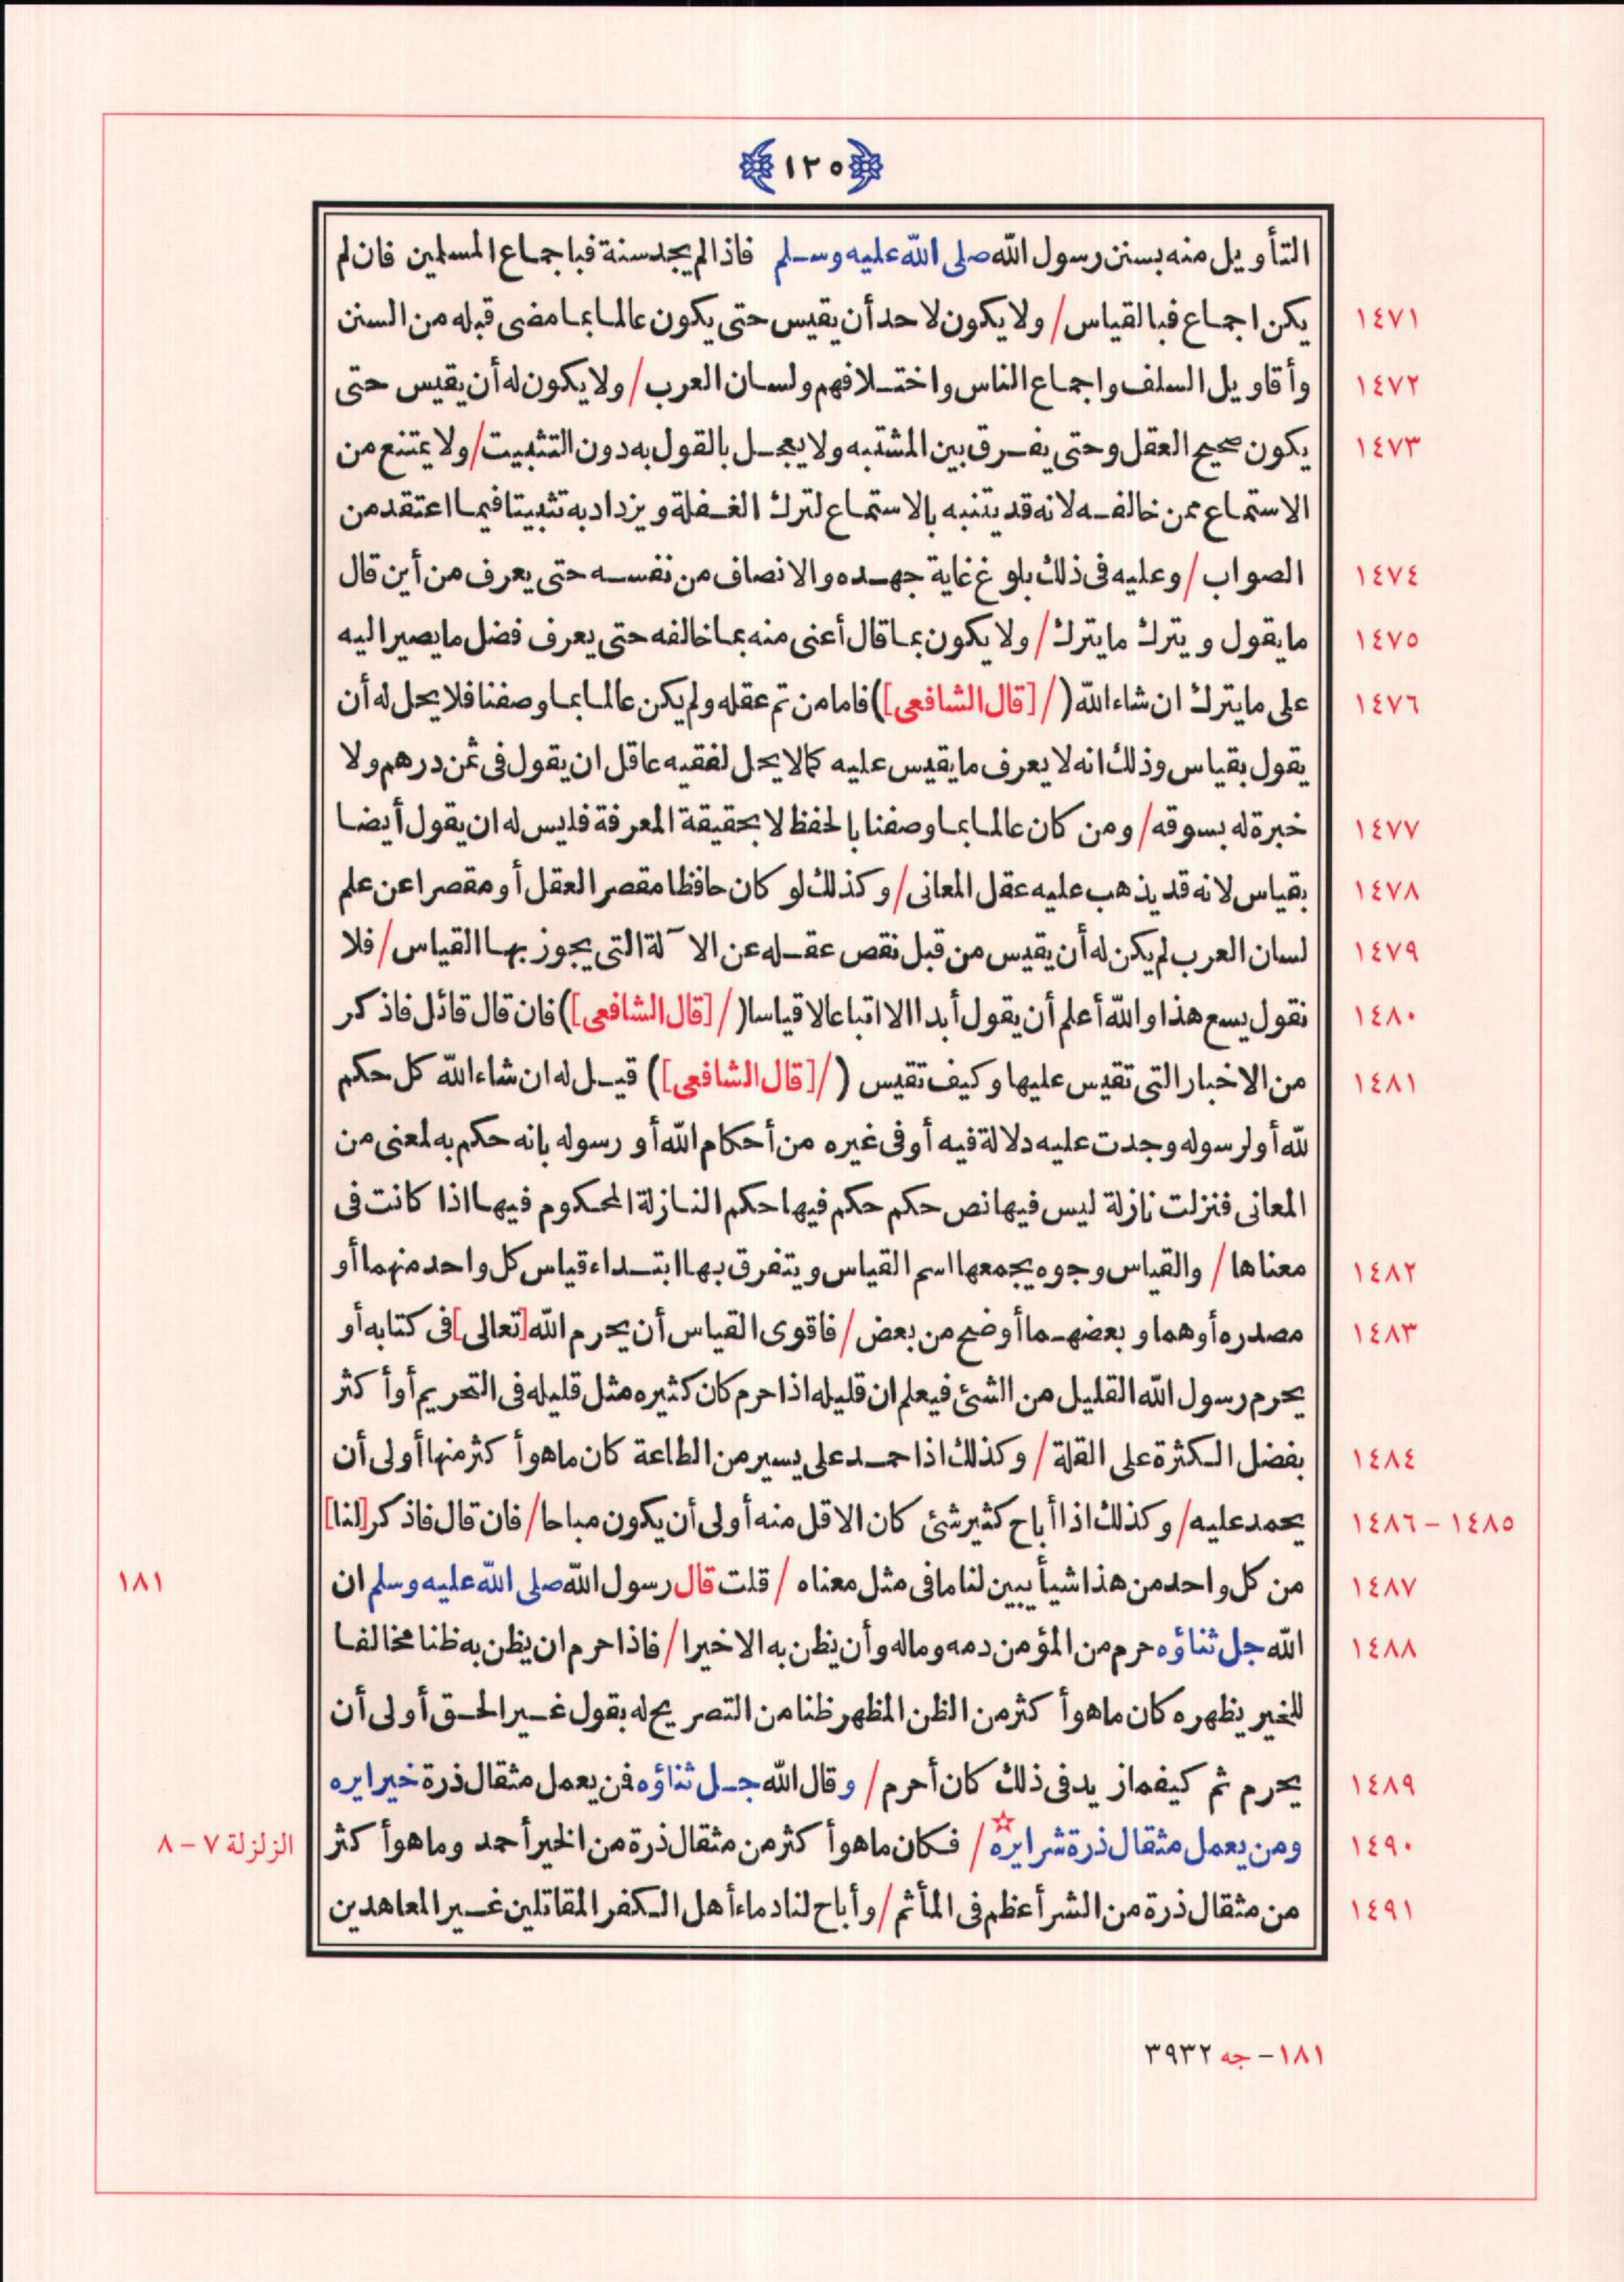 ١٢٥
التأويل منه بسنن رسول الله صلى الله عليه وسلم فاذا لم يجد سنة فباجماع المسلمين فان لم
١٤٧١ يكن اجماع فبالقياس / ولا يكون لاحد أن يقيس حتى يكون عالما بما مضى قبله من السنن
١٤٧٢ وأقاويل السلف واجماع الناس واختلافهم ولسان العرب / ولا يكون له أن يقيس حتى
١٤٧٣ يكون صحيح العقل وحتى يفرق بين المشتبه ولا يعجل بالقول به دون التثبيت / ولا يمتنع من
الاستماع ممن خالفه لانه قد يتنبه بالاستماع لترك الغفلة ويزداد به تثبيتا فيما اعتقد من
١٤٧٤ الصواب / وعليه فى ذلك بلوغ غاية جهده والانصاف من نفسه حتى يعرف من أين قال
١٤٧٥ ما يقول ويترك ما يترك / ولا يكون بما قال أعنى منه بما خالفه حتى يعرف فضل ما يصير اليه
١٤٧٦ على ما يترك ان شاء الله ( / [قال الشافعى]) فاما من تم عقله ولم يكن عالما بما وصفنا فلا يحل له أن
يقول بقياس وذلك انه لا يعرف ما يقيس عليه كما لا يحل لفقيه عاقل ان يقول فى ثمن درهم ولا
١٤٧٧ خبرة له بسوقه / ومن كان عالما بما وصفنا بالحفظ لا بحقيقة المعرفة فليس له ان يقول أيضا
١٤٧٨ بقياس لانه قد يذهب عليه عقل المعانى / وكذلك لو كان حافظا مقصر العقل أو مقصرا عن علم
١٤٧٩ لسان العرب لم يكن له أن يقيس من قبل نقص عقله عن الآلة التى يجوز بها القياس / فلا
١٤٨٠ نقول يسع هذا والله أعلم أن يقول أبدا الا اتباعا لا قياسا ( / [قال الشافعى]) فان قال قائل فاذكر
١٤٨١ من الاخبار التى تقيس عليها وكيف تقيس ( / [قال الشافعى]) قيل له ان شاء الله كل حكم
لله أو لرسوله وجدت عليه دلالة فيه أو فى غيره من أحكام الله أو رسوله بانه حكم به لمعنى من
المعانى فنزلت نازلة ليس فيها نص حكم حكم فيها حكم النازلة المحكوم فيها اذا كانت فى
١٤٨٢ معناها / والقياس وجوه يجمعها اسم القياس ويتفرق بها ابتداء قياس كل واحد منهما أو
١٤٨٣ مصدره أو هما وبعضهما أوضح من بعض / فاقوى القياس أن يحرم الله [تعالى] فى كتابه أو
يحرم رسول الله القليل من الشئ فيعلم ان قليله اذا حرم كان كثيره مثل قليله فى التحريم أو أكثر
١٤٨٤ بفضل الكثرة على القلة / وكذلك اذا حمد على يسير من الطاعة كان ما هو أكثر منها أولى أن
١٤٨٥ – ١٤٨٦ يحمد عليه / وكذلك اذا أباح كثير شئ كان الاقل منه أولى أن يكون مباحا / فان قال فاذكر [لنا]
١٤٨٧ من كل واحد من هذا شيأ يبين لنا ما فى مثل معناه / قلت قال رسول الله صلى الله عليه وسلم ان ١٨١
١٤٨٨ الله جل ثناؤه حرم من المؤمن دمه وماله وأن يظن به الا خيرا / فاذا حرم ان يظن به ظنا مخالفا
للخير يظهره كان ما هو أكثر من الظن المظهر ظنا من التصريح له بقول غير الحق أولى أن
١٤٨٩ يحرم ثم كيفما زيد فى ذلك كان أحرم / وقال الله جل ثناؤه فمن يعمل مثقال ذرة خيرا يره
١٤٩٠ ومن يعمل مثقال ذرة شرا يره ☆ / فكان ما هو أكثر من مثقال ذرة من الخير أحمد وما هو أكثر الزلزلة ٧ – ٨
١٤٩١ من مثقال ذرة من الشر أعظم فى المأثم / وأباح لنا دماء أهل الكفر المقاتلين غير المعاهدين
١٨١ – جه ٣٩٣٢